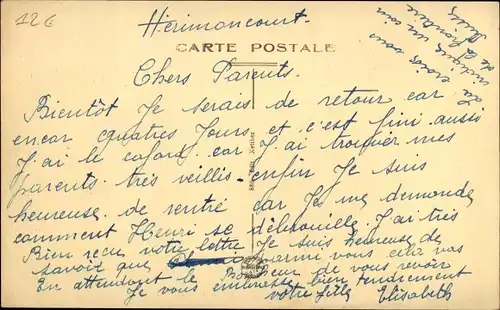 12€
Hérimoncourt.
La croix vous
indique un coin
de la frontière
Suisse
CARTE POSTALE
Chers Parents.
Bientôt Je serais de retour car
encor quatres Jours et c'est fini aussi
J'ai le cafard car J'ai trouver mes
parents très veillis enfin Je suis
heureuse de rentré car Je me demande
comment Henri se débrouille. J'ai très
Bien reçu votre lettre Je suis heureuse de
savoir que parmi vous cela vas
En attendant le Bonheur de vous revoir
Je vous embrasse bien tendrement
votre fille Elisabeth